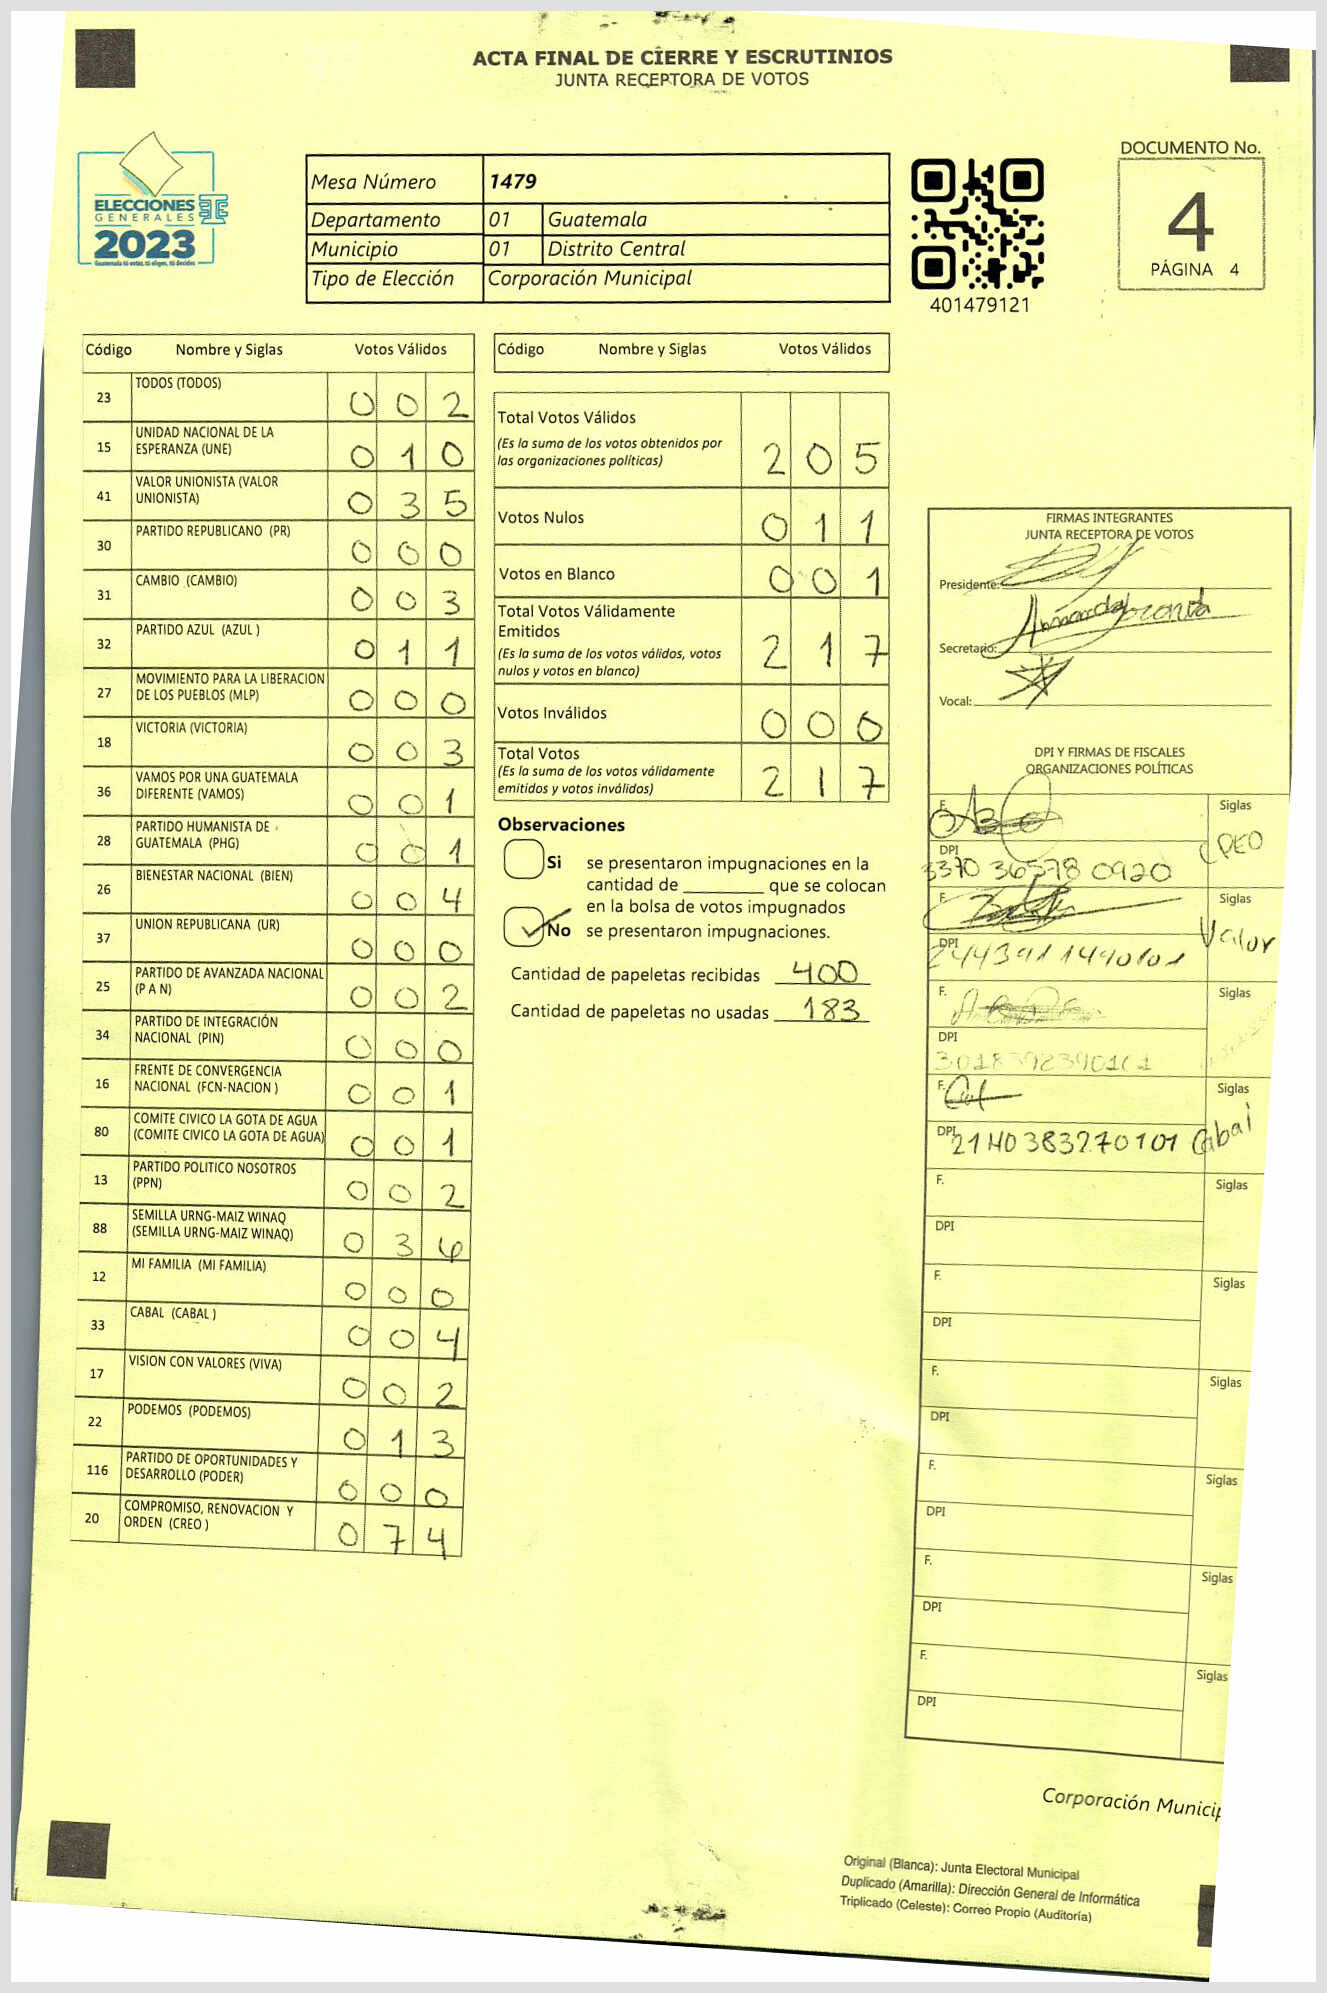 ACTA FINAL DE CIERRE Y ESCRUTINIOS
JUNTA RECEPTORA DE VOTOS
ELECCIONES
GENERALES
2023
Guatemala tú votas, tú eliges, tú decides
Mesa Número 1479
Departamento 01 Guatemala
Municipio 01 Distrito Central
Tipo de Elección Corporación Municipal
401479121
DOCUMENTO No.
4
PÁGINA 4
Código Nombre y Siglas Votos Válidos
23 TODOS (TODOS) 0 0 2
15 UNIDAD NACIONAL DE LA
ESPERANZA (UNE) 0 1 0
41 VALOR UNIONISTA (VALOR
UNIONISTA) 0 3 5
30 PARTIDO REPUBLICANO (PR) 0 0 0
31 CAMBIO (CAMBIO) 0 0 3
32 PARTIDO AZUL (AZUL ) 0 1 1
27 MOVIMIENTO PARA LA LIBERACION
DE LOS PUEBLOS (MLP) 0 0 0
18 VICTORIA (VICTORIA) 0 0 3
36 VAMOS POR UNA GUATEMALA
DIFERENTE (VAMOS) 0 0 1
28 PARTIDO HUMANISTA DE
GUATEMALA (PHG) 0 0 1
26 BIENESTAR NACIONAL (BIEN) 0 0 4
37 UNION REPUBLICANA (UR) 0 0 0
25 PARTIDO DE AVANZADA NACIONAL
(P A N) 0 0 2
34 PARTIDO DE INTEGRACIÓN
NACIONAL (PIN) 0 0 0
16 FRENTE DE CONVERGENCIA
NACIONAL (FCN-NACION ) 0 0 1
80 COMITE CIVICO LA GOTA DE AGUA
(COMITE CIVICO LA GOTA DE AGUA) 0 0 1
13 PARTIDO POLITICO NOSOTROS
(PPN) 0 0 2
88 SEMILLA URNG-MAIZ WINAQ
(SEMILLA URNG-MAIZ WINAQ) 0 3 6
12 MI FAMILIA (MI FAMILIA) 0 0 0
33 CABAL (CABAL ) 0 0 4
17 VISION CON VALORES (VIVA) 0 0 2
22 PODEMOS (PODEMOS) 0 1 3
116 PARTIDO DE OPORTUNIDADES Y
DESARROLLO (PODER) 0 0 0
20 COMPROMISO, RENOVACION Y
ORDEN (CREO ) 0 7 4
Código Nombre y Siglas Votos Válidos
Total Votos Válidos
(Es la suma de los votos obtenidos por
las organizaciones políticas) 2 0 5
Votos Nulos 0 1 1
Votos en Blanco 0 0 1
Total Votos Válidamente
Emitidos
(Es la suma de los votos válidos, votos
nulos y votos en blanco) 2 1 7
Votos Inválidos 0 0 0
Total Votos
(Es la suma de los votos válidamente
emitidos y votos inválidos) 2 1 7
Observaciones
Si se presentaron impugnaciones en la
cantidad de ________ que se colocan
en la bolsa de votos impugnados
No se presentaron impugnaciones.
Cantidad de papeletas recibidas 400
Cantidad de papeletas no usadas 183
FIRMAS INTEGRANTES
JUNTA RECEPTORA DE VOTOS
Presidente:
Secretario:
Vocal:
DPI Y FIRMAS DE FISCALES
ORGANIZACIONES POLÍTICAS
F. Siglas
DPI
3370 36578 0920
F. Siglas
Valor
DPI
2443911440101
F. Siglas
DPI
F. Siglas
DPI 2140383270101 Cabal
F. Siglas
DPI
F. Siglas
DPI
F. Siglas
DPI
F. Siglas
DPI
F. Siglas
DPI
F. Siglas
DPI
Corporación Municip
Original (Blanca): Junta Electoral Municipal
Duplicado (Amarilla): Dirección General de Informática
Triplicado (Celeste): Correo Propio (Auditoría)